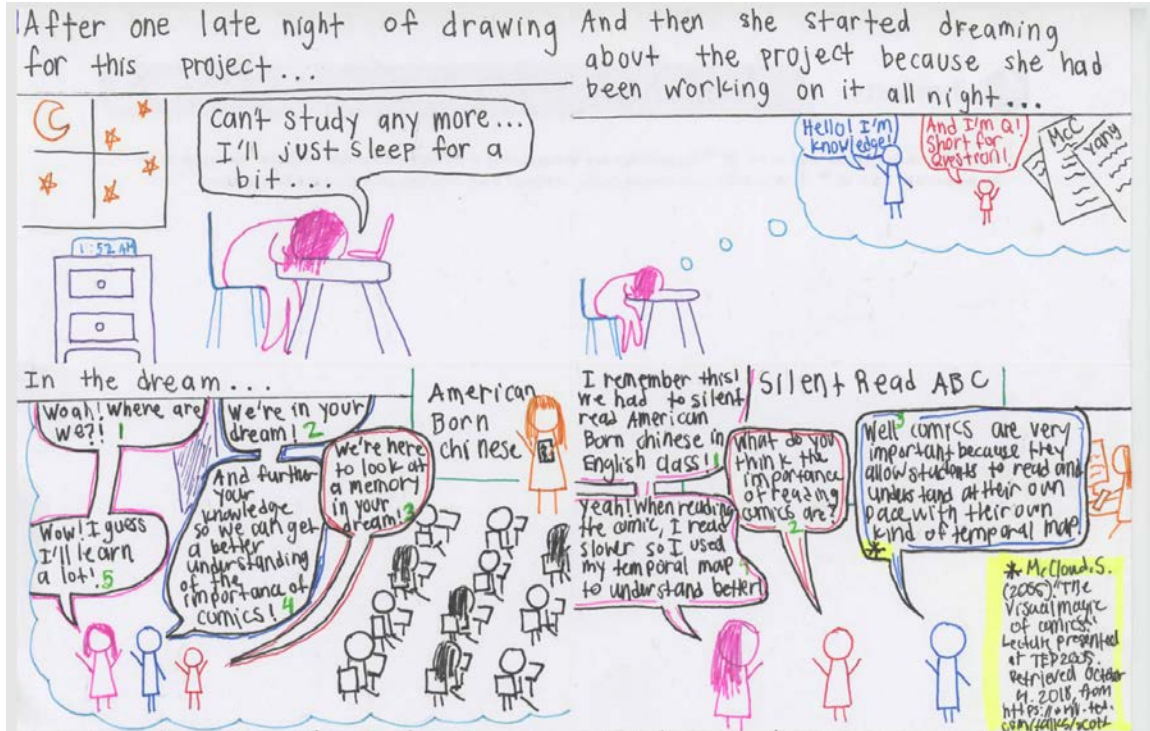 After one late night of drawing
for this project...
Can't study any more...
I'll just sleep for a
bit....
1:52 AM
And then she started dreaming
about the project because she had
been working on it all night...
Hello! I'm
knowledge!
And I'm Q!
Short for
Question!
McC
Yang
In the dream...
Woah! Where are
we?! 1
We're in your
dream! 2
We're here
to look at
a memory
in your
dream! 3
And further
your
knowledge
so we can get
a better
understanding
of the
importance of
comics! 4
Wow! I guess
I'll learn
a lot! 5
American
Born
Chinese
Silent Read ABC
I remember this!
We had to silent
read American
Born Chinese in
English class! 1
What do you
think the
importance
of reading
comics are?
2
Well 3 comics are very
important because they
allow students to read and
understand at their own
pace with their own
kind of temporal map
*
Yeah! When reading
the comic, I read
slower so I used
my temporal map 4
to understand better
* McCloud, S.
(2005). "The
Visual magic
of comics."
Lecture presented
at TED2005.
Retrieved October
4, 2018, from
https://www.ted.
com/talks/scott